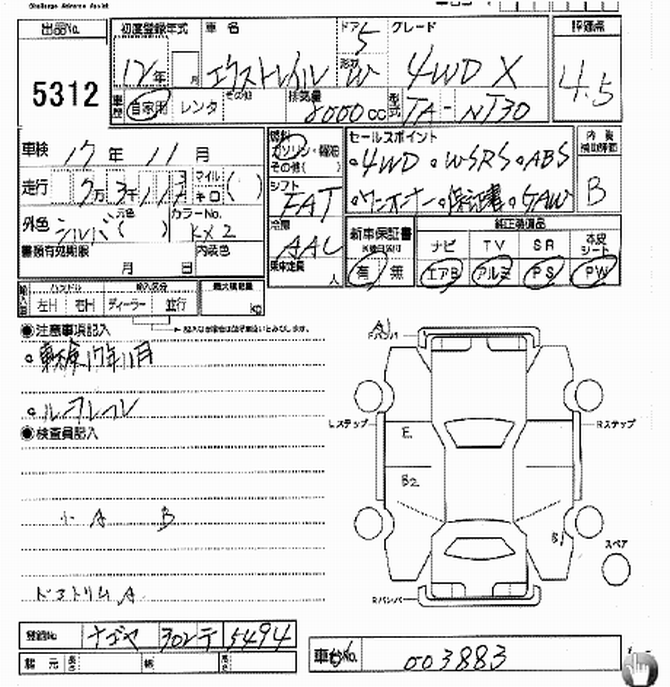 Challenge Advance Assist
出品No. 初度登録年式 車名 ドア グレード 評価点
5312 12年 月 エクストレイル 5 形状 W 4WD X 4.5
車歴 自家用 レンタ その他 排気量 2000cc 型式 TA-NT30
車検 17年 11月 燃料 ガソリン・軽油 その他( ) セールスポイント 内装補助評価
・4WD ・W-SRS ・ABS B
走行 7万3千117 マイル キロ ( ) シフト FAT ・ワンオーナー ・保証書
外色 シルバ 元色 ( ) カラーNo. KX2 冷房 AAC 新車保証書 純正装備品
ナビ TV SR 本皮シート
書類有効期限 月 日 内装色 乗車定員 人 有 無 エアB アルミ PS PW
輸入車 ハンドル 左H 右H 輸入区分 ディーラー 並行 最大積載量 kg
◉注意事項記入
。車検17年11月
。ルーフレール
◉検査員記入
小 A B
A1 Fバンパ
Lステップ Rステップ
E
B2
スペア
Rバンパ
登録No ナゴヤ 302 テ 5494
諸元 長さ 幅 高さ
車台No. 003883